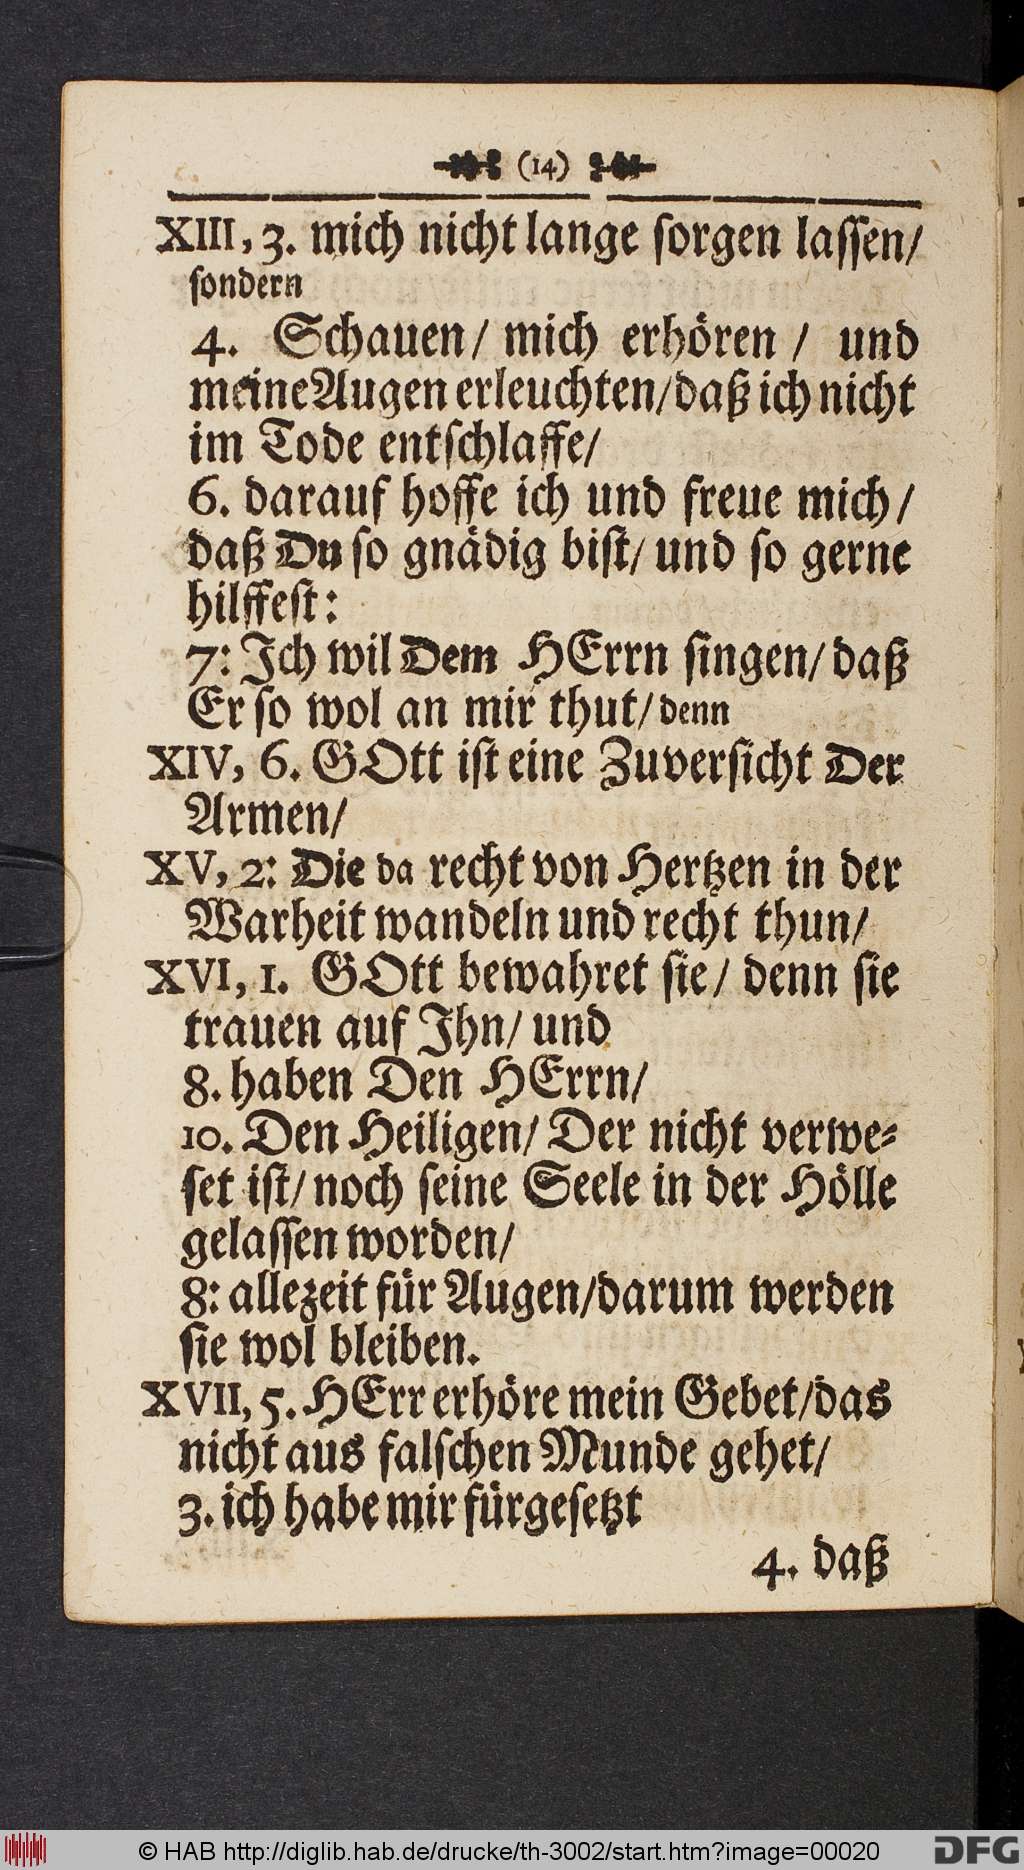 (14)
XIII, 3. mich nicht lange sorgen lassen/
sondern
4. Schauen/ mich erhören / und
meine Augen erleuchten/daß ich nicht
im Tode entschlaffe/
6. darauf hoffe ich und freue mich/
daß Du so gnädig bist/ und so gerne
hilffest:
7: Ich wil Dem HErrn singen/ daß
Er so wol an mir thut/ denn
XIV, 6. GOtt ist eine Zuversicht Der
Armen/
XV, 2: Die da recht von Hertzen in der
Warheit wandeln und recht thun/
XVI, 1. GOtt bewahret sie/ denn sie
trauen auf Ihn/ und
8. haben Den HErrn/
10. Den Heiligen/ Der nicht verwe=
set ist/ noch seine Seele in der Hölle
gelassen worden/
8: allezeit für Augen/darum werden
sie wol bleiben.
XVII, 5. HErr erhöre mein Gebet/das
nicht aus falschen Munde gehet/
3. ich habe mir fürgesetzt
4. daß
© HAB http://diglib.hab.de/drucke/th-3002/start.htm?image=00020
DFG